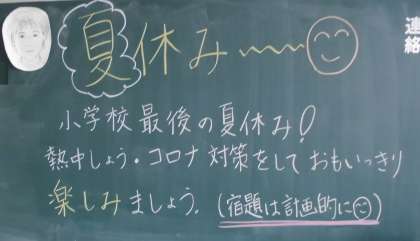 夏休み〜〜
連絡
小学校最後の夏休み!
熱中しょう・コロナ対策をしておもいっきり
楽しみましょう。(宿題は計画的に☺)